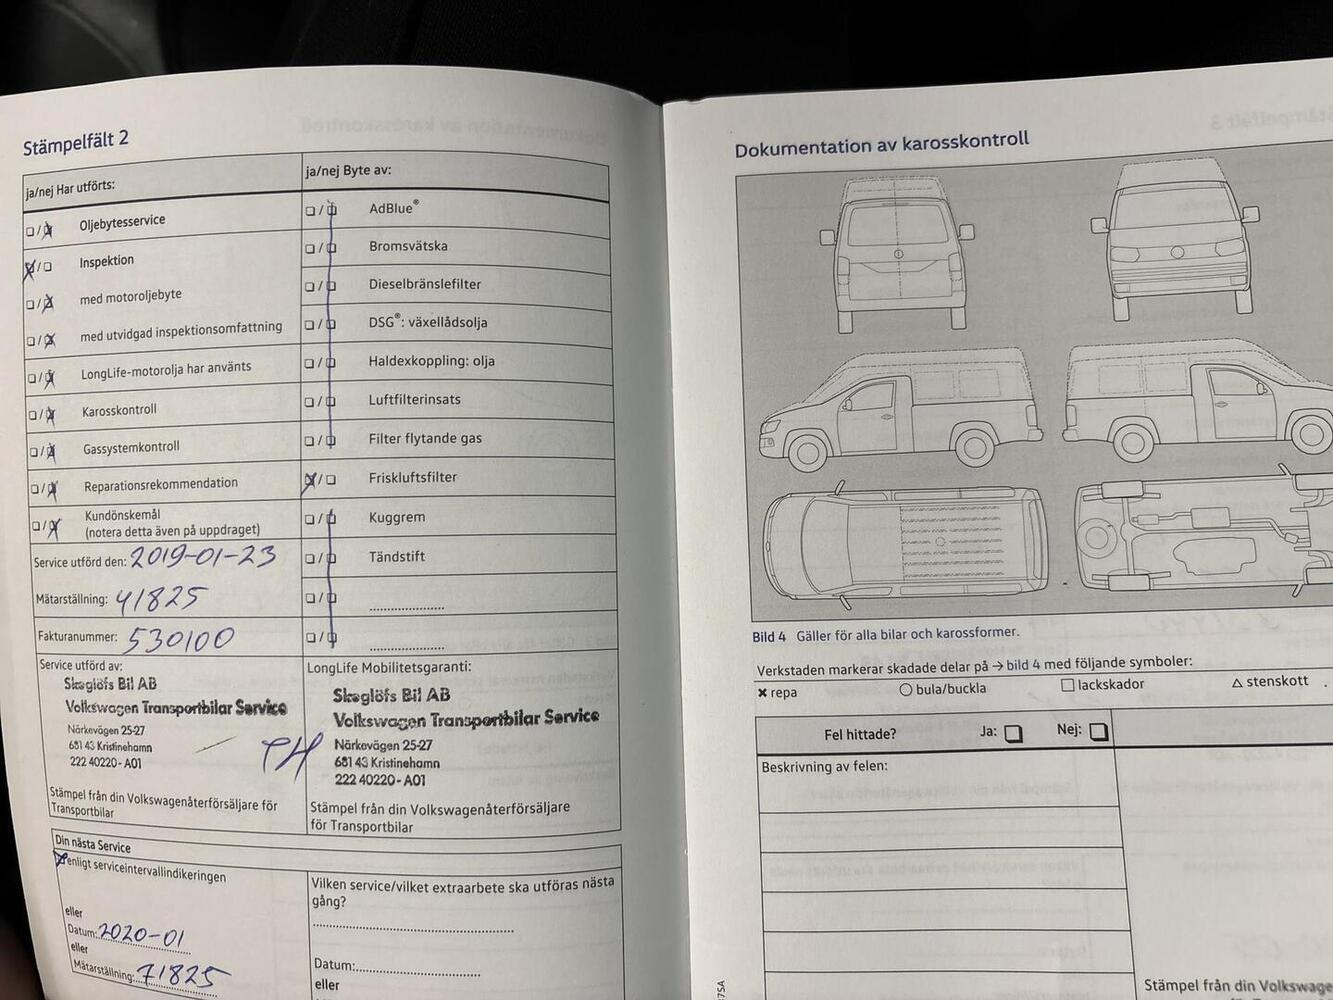 Stämpelfält 2
ja/nej Har utförts:
ja/nej Byte av:
Oljebytesservice
Inspektion
med motoroljebyte
med utvidgad inspektionsomfattning
LongLife-motorolja har använts
Karosskontroll
Gassystemkontroll
Reparationsrekommendation
Kundönskemål
(notera detta även på uppdraget)
AdBlue®
Bromsvätska
Dieselbränslefilter
DSG®: växellådsolja
Haldexkoppling: olja
Luftfilterinsats
Filter flytande gas
Friskluftsfilter
Kuggrem
Tändstift
Service utförd den: 2019-01-23
Mätarställning: 41825
Fakturanummer: 530100
Service utförd av:
Skoglöfs Bil AB
Volkswagen Transportbilar Service
Närkevägen 25-27
681 43 Kristinehamn
222 40220-A01
Stämpel från din Volkswagenåterförsäljare för
Transportbilar
LongLife Mobilitetsgaranti:
Skoglöfs Bil AB
Volkswagen Transportbilar Service
Närkevägen 25-27
681 43 Kristinehamn
222 40220-A01
Stämpel från din Volkswagenåterförsäljare
för Transportbilar
Din nästa Service
enligt serviceintervallindikeringen
eller
Datum: 2020-01
eller
Mätarställning: 71825
Vilken service/vilket extraarbete ska utföras nästa
gång?
Datum:
eller
Dokumentation av karosskontroll
Bild 4 Gäller för alla bilar och karossformer.
Verkstaden markerar skadade delar på → bild 4 med följande symboler:
× repa ○ bula/buckla □ lackskador △ stenskott
Fel hittade? Ja: Nej:
Beskrivning av felen:
Stämpel från din Volkswage